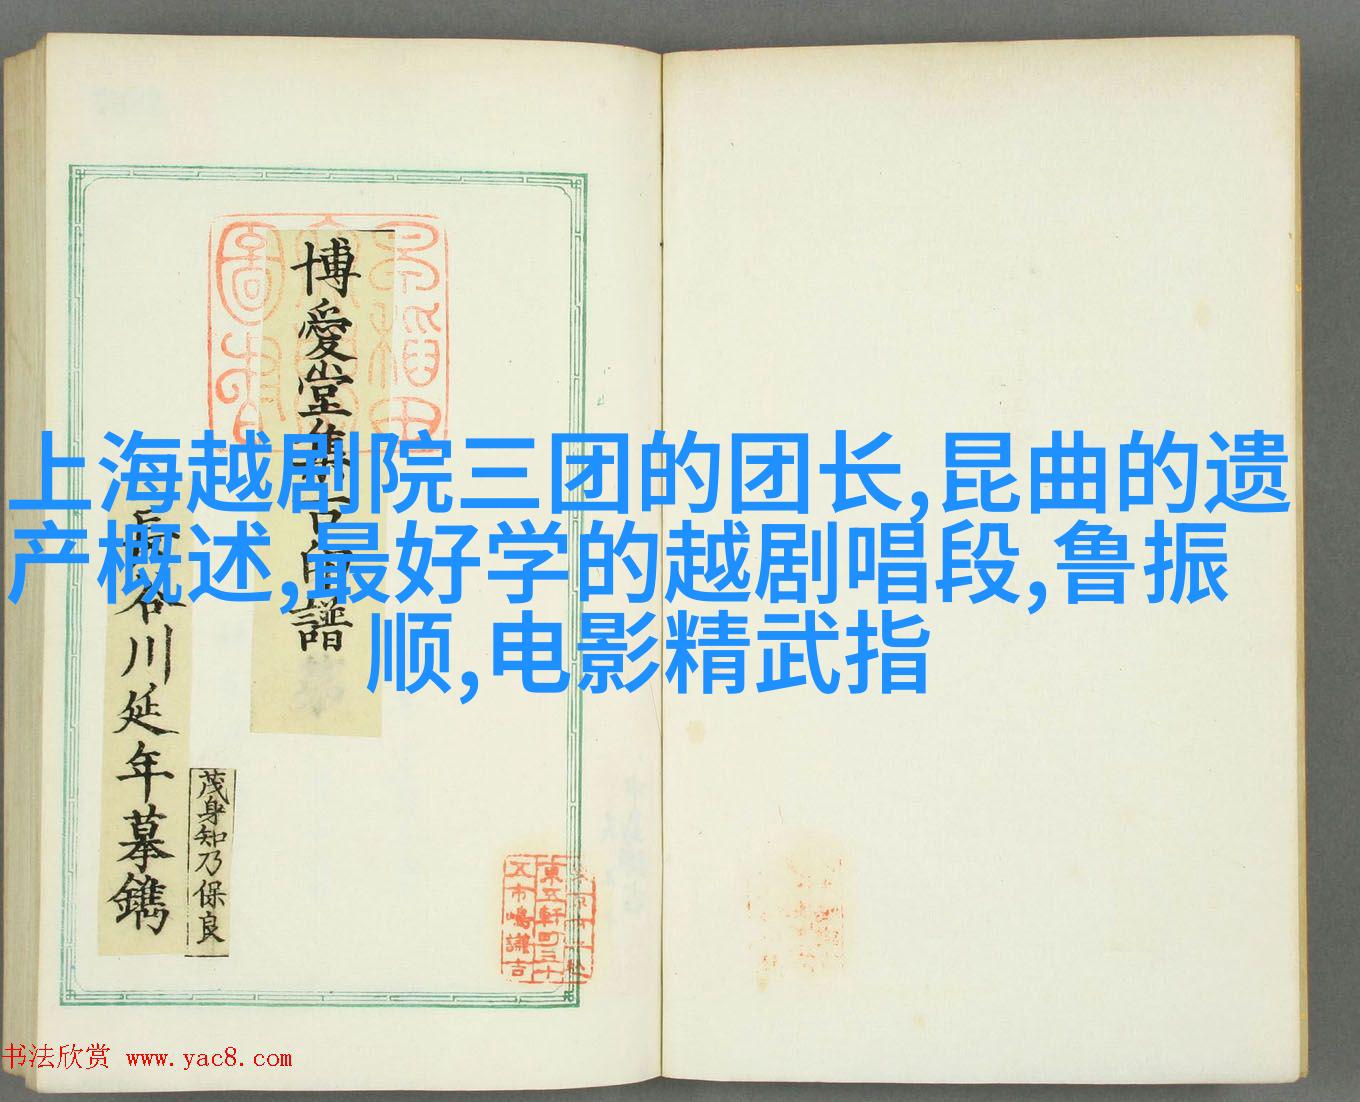 上海越剧院三团的团长,昆曲的遗
产概述,最好学的越剧唱段,鲁振
顺,电影精武指
博愛堂集古印譜
長谷川延年摹鐫
茂身知乃保良
東五軒町三十
五市嶋謙吉
书法欣赏 www.yac8.com